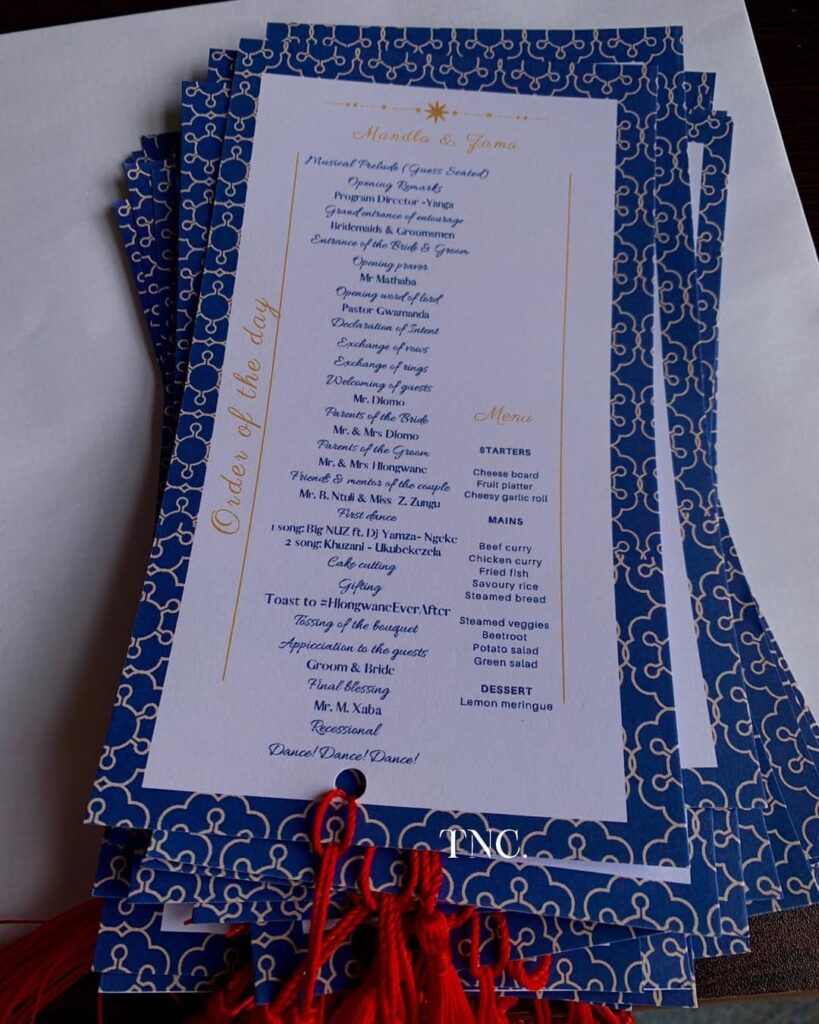 Mandla & Zama
Order of the day
Musical Prelude (Guess Seated)
Opening Remarks
Program Director -Yanga
Grand entrance of entourage
Bridemaids & Groomsmen
Entrance of the Bride & Groom
Opening prayer
Mr Mathaba
Opening word of lord
Pastor Gwamanda
Declaration of Intent
Exchange of vows
Exchange of rings
Welcoming of guests
Mr. Dlomo
Parents of the Bride
Mr. & Mrs Dlomo
Parents of the Groom
Mr. & Mrs Hlongwane
Friends & mentor of the couple
Mr. B. Ntuli & Miss Z. Zungu
First dance
1 song: Big NUZ ft. Dj Yamza- Ngeke
2 song: Khuzani - Ukubekezela
Cake cutting
Gifting
Toast to #HlongwaneEverAfter
Tossing of the bouquet
Appicciation to the guests
Groom & Bride
Final blessing
Mr. M. Xaba
Recessional
Dance! Dance! Dance!
Menu
STARTERS
Cheese board
Fruit platter
Cheesy garlic roll
MAINS
Beef curry
Chicken curry
Fried fish
Savoury rice
Steamed bread
Steamed veggies
Beetroot
Potato salad
Green salad
DESSERT
Lemon meringue
TNC.